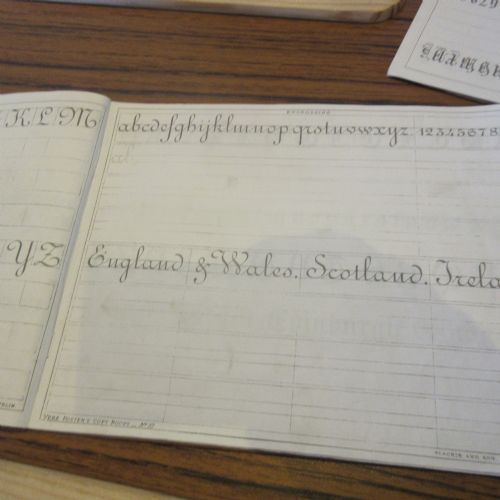 K L M
Y Z
ENGROSSING
abcdefghijklmnopqrstuvwxyz 12345678
England & Wales. Scotland. Irela
VERE FOSTER'S COPY BOOKS
BLACKIE AND SON